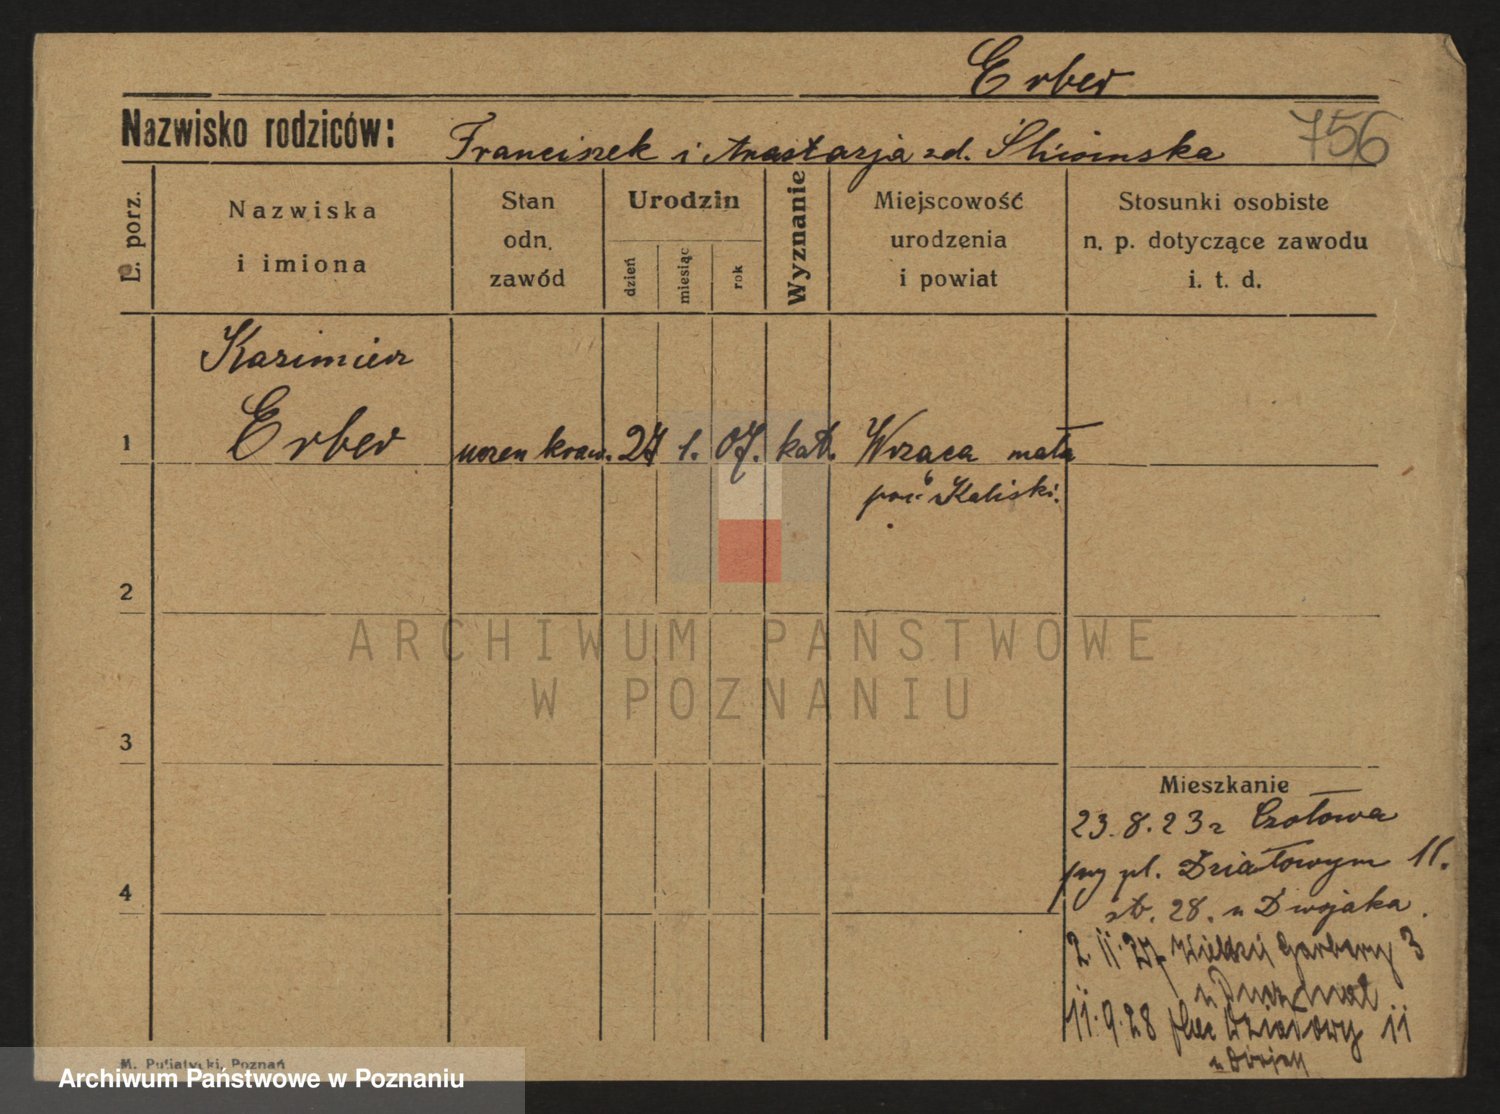 Erber
Nazwisko rodziców: Franciszek i Anastazja zd. Śliwinska 756
L. porz. Nazwiska i imiona Stan odn. zawód Urodzin dzień miesiąc rok Wyznanie Miejscowość urodzenia i powiat Stosunki osobiste n. p. dotyczące zawodu i. t. d.
Kazimierz
1 Erber uczen kraw. 27 1. 07. kat. Wrzaca mała
pow. Kaliski.
2
ARCHIWUM PAŃSTWOWE
W POZNANIU
3
Mieszkanie
23.8.23 r Czołowa
przy pl. Działowym 11.
4
28. u Dwojaka.
2.11.27 Wielkie Garbary 3
u
11.9.28 plac Działowy 11
u
M. Putiatycki, Poznań
Archiwum Państwowe w Poznaniu